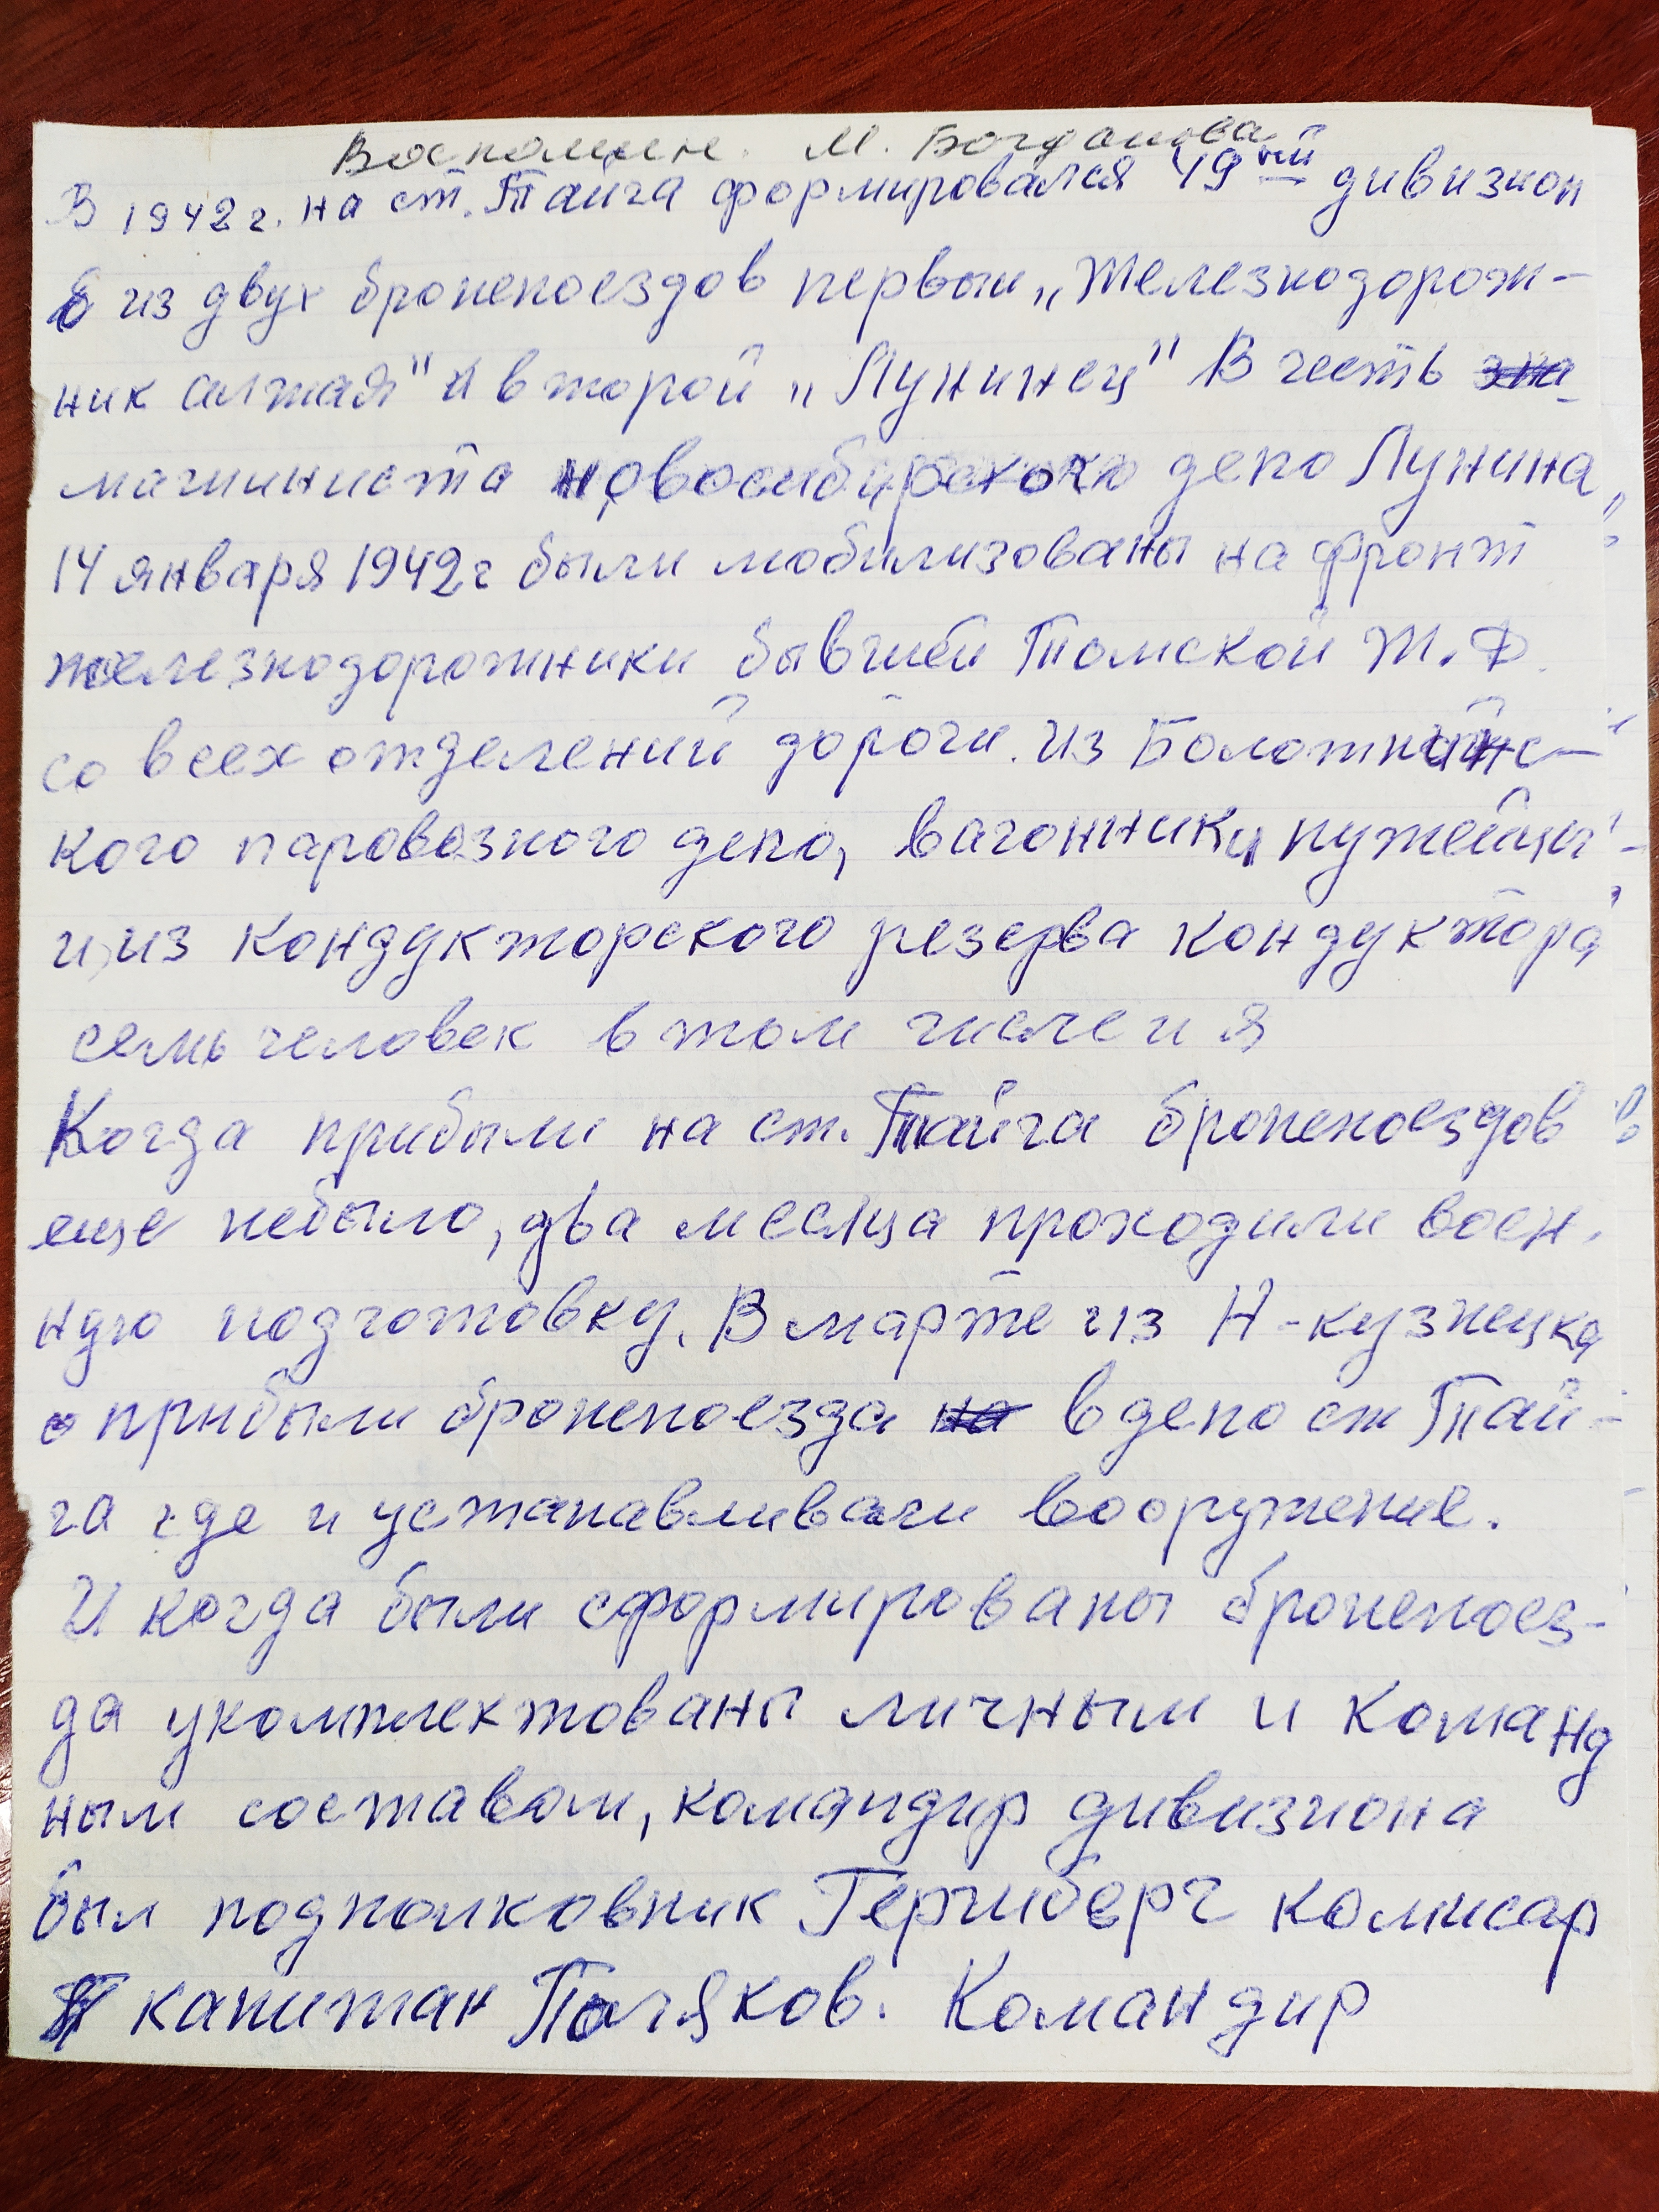 Воспомин. М. Богданова
В 1942 г. на ст. Тайга формировался 49ый дивизион
из двух бронепоездов первый „Железнодорож-
ник алтая" и второй „Лунинец" В честь
машиниста новосибирского депо Лунина
14 января 1942 г были мобилизованы на фронт
железнодорожники бывшей Томской Ж.Д.
со всех отделений дороги. из Болотнинс-
кого паровозного депо, вагонники путейцы
и из кондукторского резерва кондуктора
семь человек в том числе и я
Когда прибыли на ст. Тайга бронепоездов
еще небыло, два месяца проходили воен.
ную подготовку. В марте из Н-кузнецка
прибыли бронепоезда в депо ст Тай-
га где и устанавливали вооружение.
И когда были сформированы бронепоез-
да укомплектованы личным и команд
ным составом, командир дивизиона
был подполковник Геришберг комисар
капитан Поляков. Командир